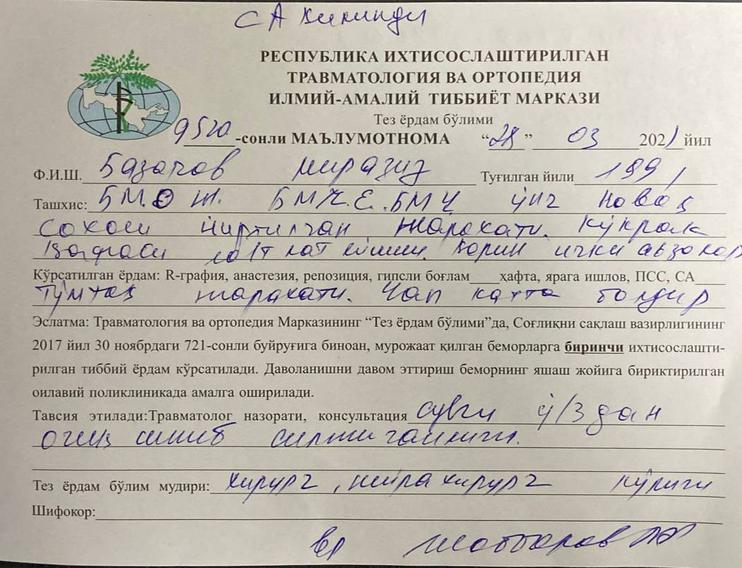 СА килинди
РЕСПУБЛИКА ИХТИСОСЛАШТИРИЛГАН
ТРАВМАТОЛОГИЯ ВА ОРТОПЕДИЯ
ИЛМИЙ-АМАЛИЙ ТИББИЁТ МАРКАЗИ
Тез ёрдам бўлими
9520 -сонли МАЪЛУМОТНОМА “28” 03 2021 йил
Ф.И.Ш. Базаров Миразиз Туғилган йили 1991
Ташхис: БМЖ. БМЧЕ. ўнг
сохаси йиртилган жарохати. Кўкрак
қафаси лат ейиши. Қорин ички аъзолар
Кўрсатилган ёрдам: R-графия, анастезия, репозиция, гипсли боғлам ___ ҳафта, ярага ишлов, ПСС, СА
тўмтоқ жарохати. Чап катта болдир
Эслатма: Травматология ва ортопедия Марказининг “Тез ёрдам бўлими”да, Соғлиқни сақлаш вазирлигининг
2017 йил 30 ноябрдаги 721-сонли буйруғига биноан, мурожаат қилган беморларга биринчи ихтисослашти-
рилган тиббий ёрдам кўрсатилади. Даволанишни давом эттириш беморнинг яшаш жойига бириктирилган
оилавий поликлиникада амалга оширилади.
Тавсия этилади:Травматолог назорати, консультация суяги ў/3 дан
очиқ синиб силжиганлиги.
Тез ёрдам бўлим мудири: хирург, нейрохирург кўриги
Шифокор:
вр